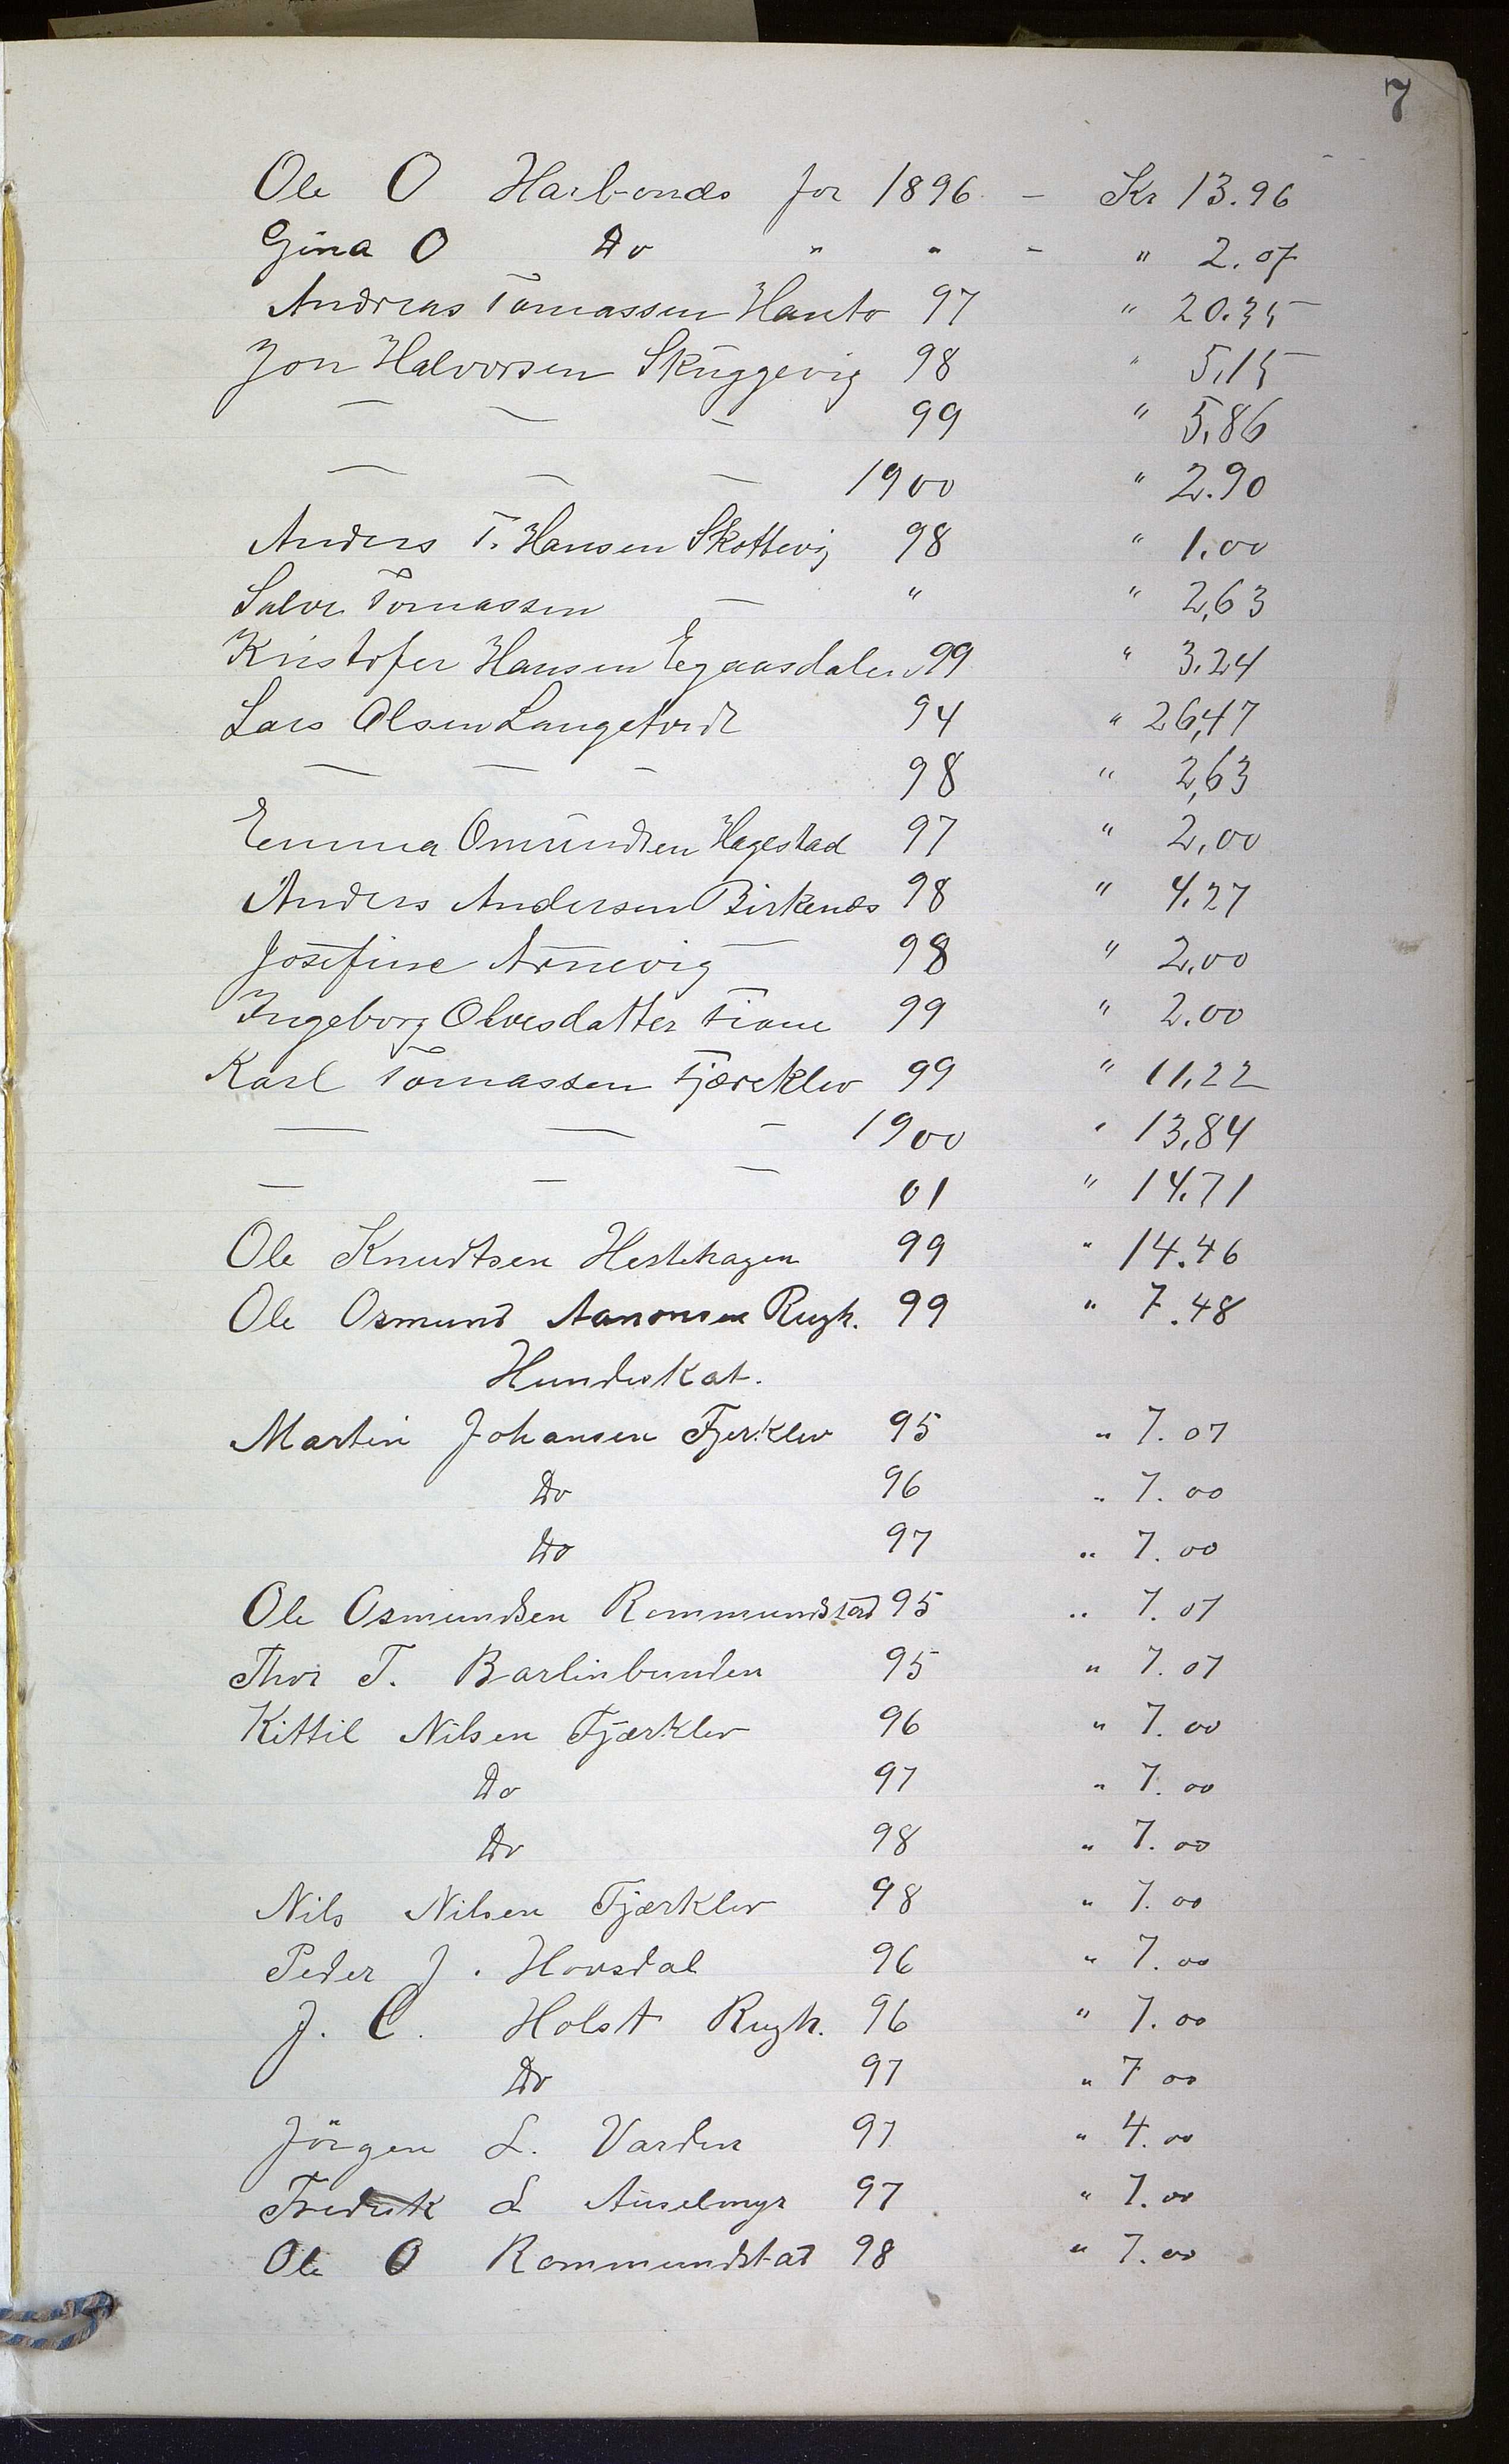 7
Ole O Harbonds for 1896 - Kr 13.96
Gina O Do " " - " 2.07
Andreas Tomassen Hanto 97 " 20.35
Jon Halvorsen Skuggevig 98 " 5,15
— — - 99 " 5,86
— — — 1900 " 2.90
Anders T. Hansen Skottevig 98 " 1.00
Salve Tomassen — " " 2,63
Kristofer Hansen Egaasdalen 99 " 3.24
Lars Olsen Langetvedt 94 " 26,47
— — - 98 " 2,63
Emma Omundsen Hagestad 97 " 2,00
Anders Andersen Birkenes 98 " 4.27
Josefine Arnevig — 98 " 2,00
Ingeborg Olvesdatter Fiane 99 " 2.00
Karl Tomassen Fjæreklev 99 " 11,22
— — - 1900 " 13,84
— — — 01 " 14.71
Ole Knudtsen Hestehagen 99 " 14.46
Ole Osmund Aanonsen Rugh. 99 " 7.48
Hundeskat.
Martin Johansen Fjerklev 95 " 7.07
Do 96 " 7.00
Do 97 " 7.00
Ole Osmundsen Rommundstad 95 " 7.07
Thor T. Barlinbunden 95 " 7.07
Kittil Nilsen Fjærklev 96 " 7.00
Do 97 " 7.00
Do 98 " 7.00
Nils Nilsen Fjærklev 98 " 7.00
Peder J. Hovsdal 96 " 7.00
J. C. Holst Rugh. 96 " 7.00
Do 97 " 7 00
Jörgen L. Varden 97 " 4.00
Fredrik L Auselmyr 97 " 7.00
Ole O Rommundstad 98 " 7.00